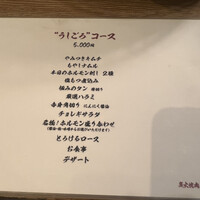 "うしごろ"コース
5,000円
やみつきキムチ
もやしナムル
本日のホルモン刺し 2種
塩もつ煮込み
極みのタン
厳選ハラミ
赤身角切り にんにく醤油
チョレギサラダ
名物!ホルモン盛り合わせ
とろけるロース
お食事
デザート